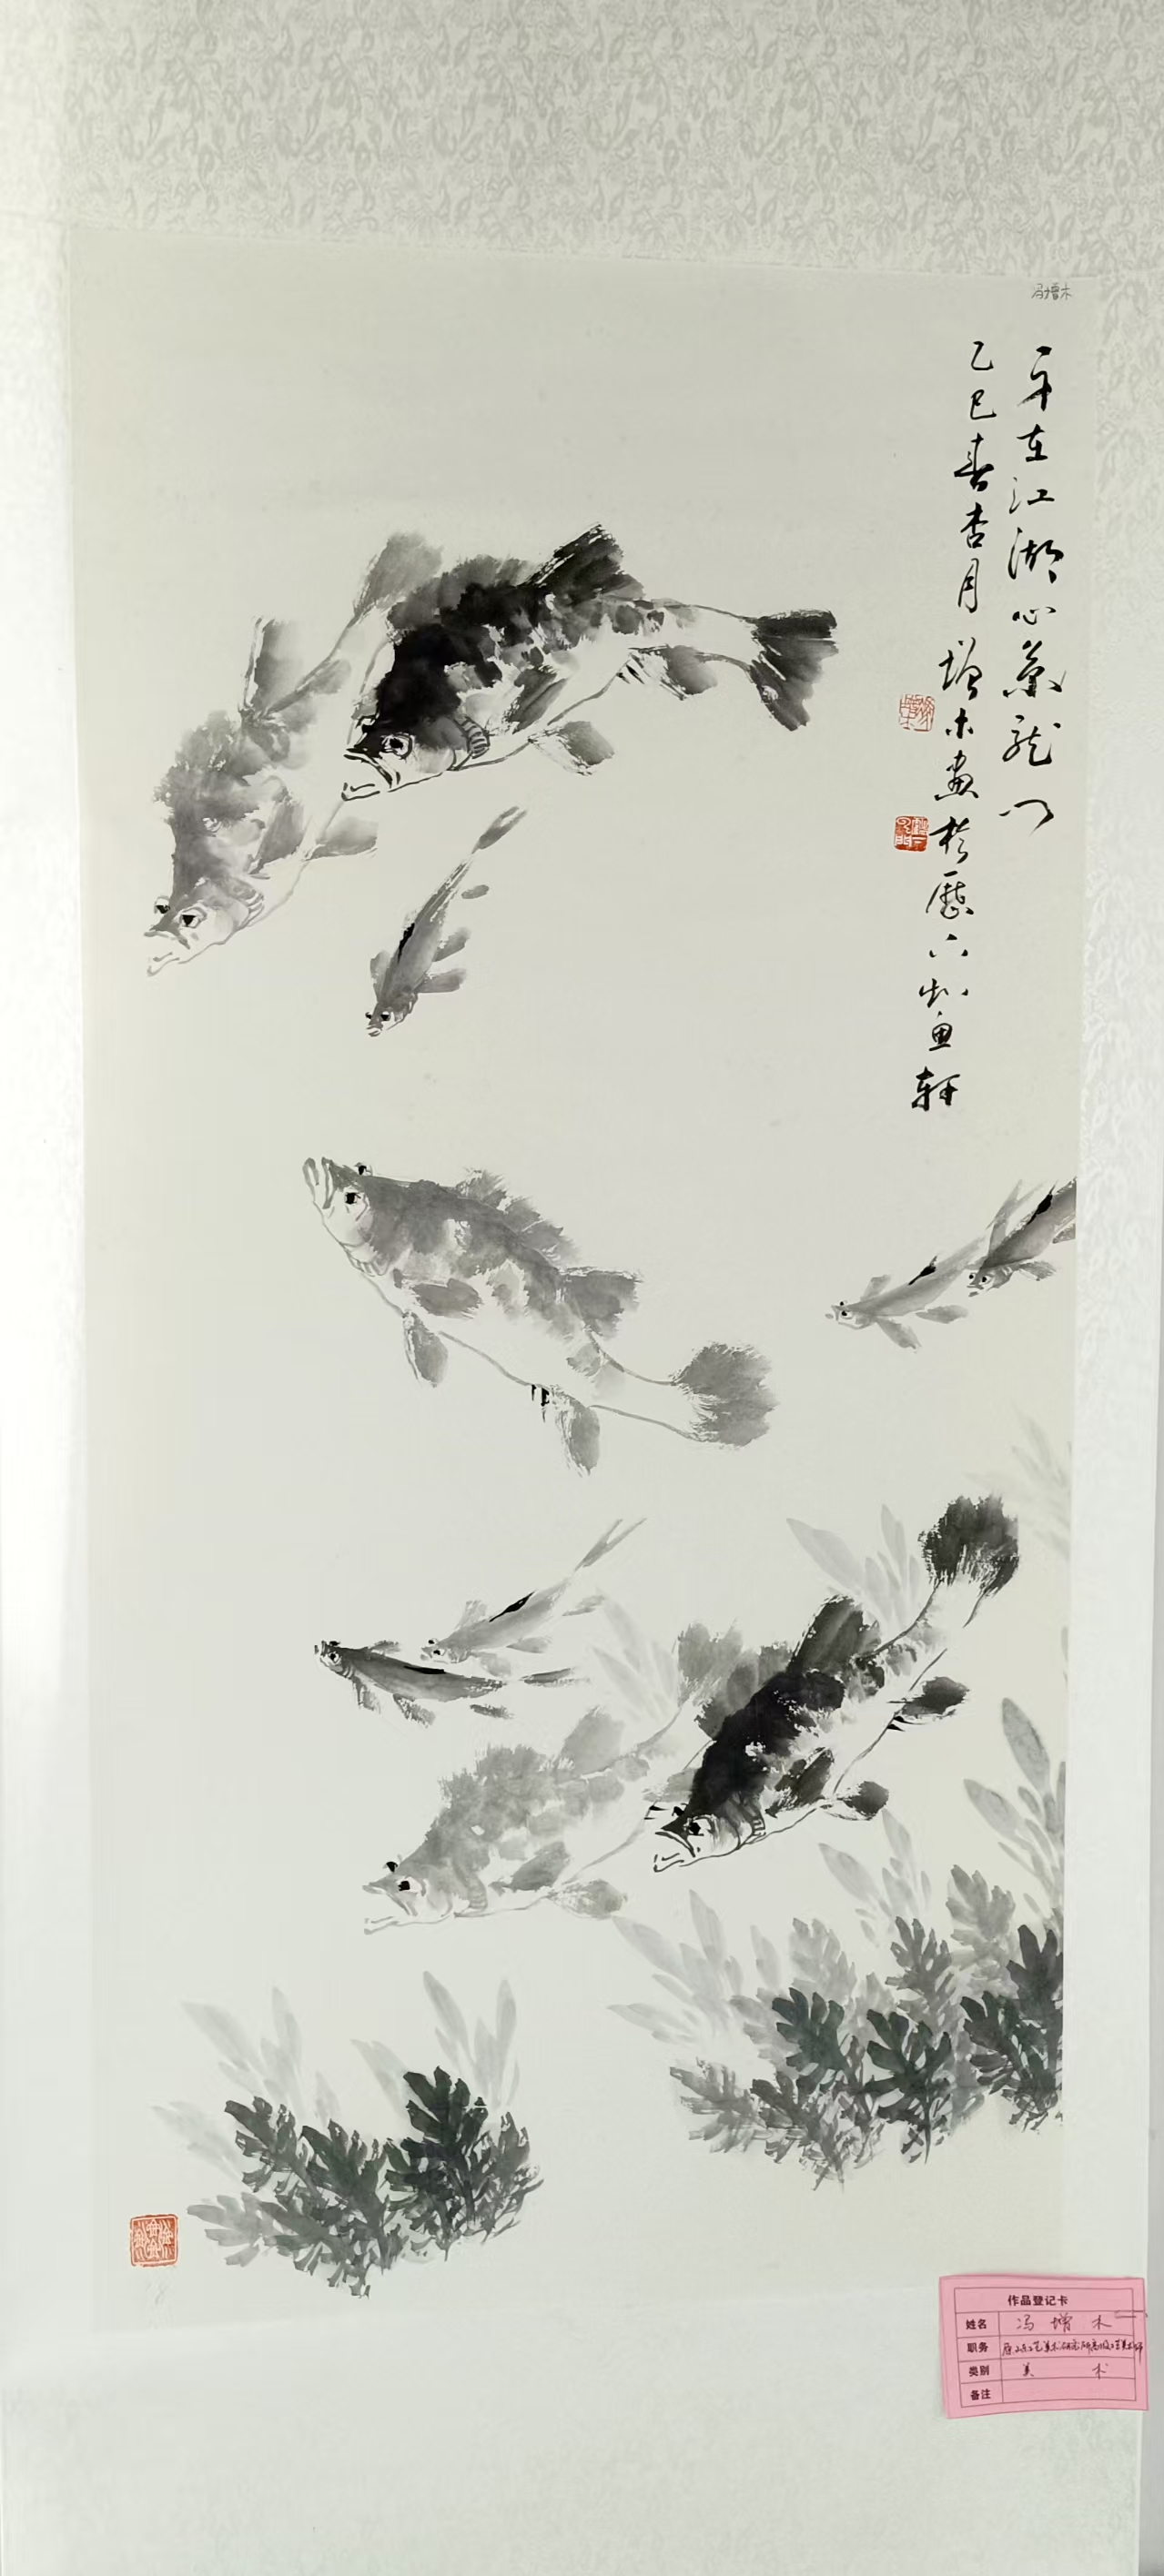 冯增木
身在江湖心系龙门
乙巳春杏月增木画于历下虬鱼轩
作品登记卡
姓名 冯增木
职务
类别 美术
备注